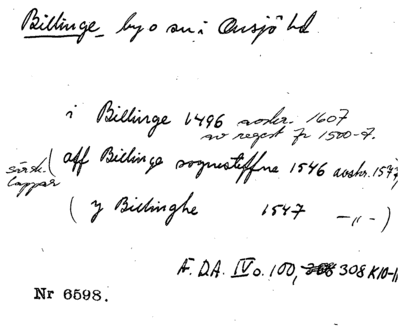 Billinge by o sn i Onsjö hd
i Billinge 1496 avskr. 1607
av regest fr 1500-t.
särsk. lappar ( aff Billinge sognesteffne 1546 avskr. 1597,
( y Billinghe 1547 —„—)
Æ. D.A. IV o. 100, 308 K10-11
Nr 6598.